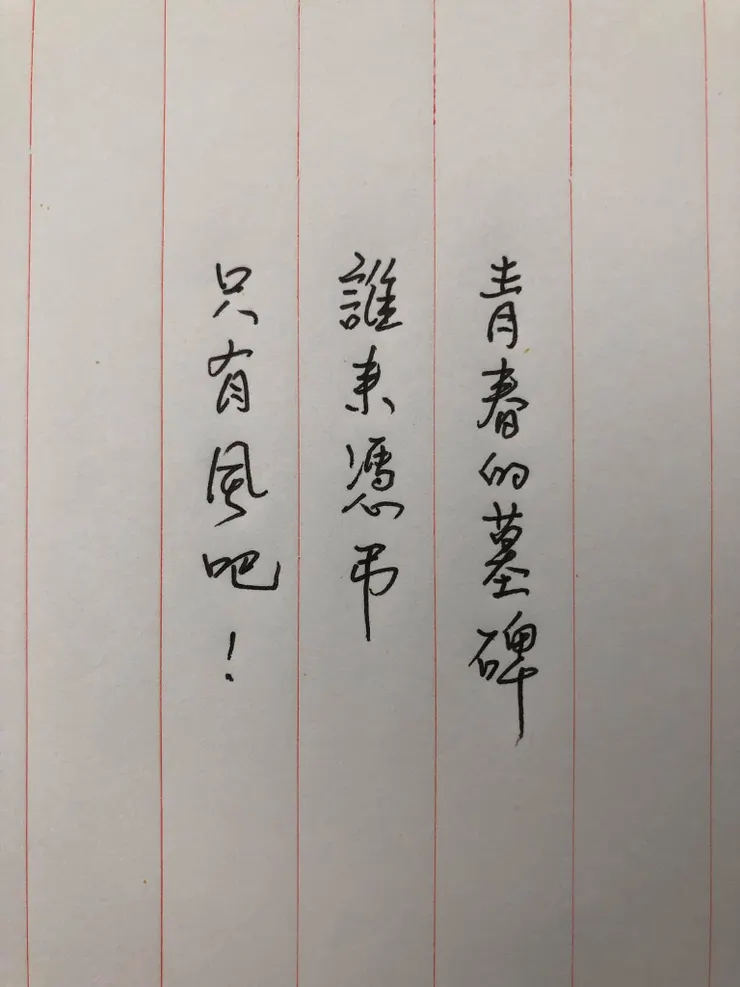 青春的墓碑
誰来憑弔
只有風吧!